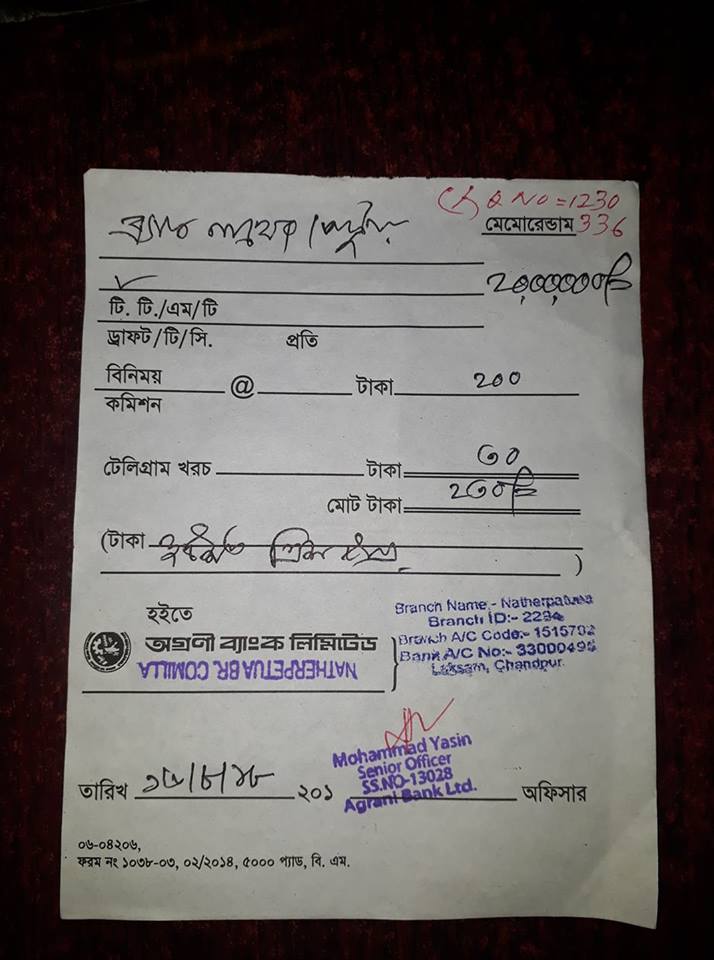 Q NO = 1230
মেমোরেন্ডাম 336
টি. টি./এম/টি
ড্রাফট/টি/সি. প্রতি
বিনিময় @ টাকা ২০০
কমিশন
টেলিগ্রাম খরচ টাকা ৩০
মোট টাকা ২৩০
(টাকা )
হইতে
অগ্রণী ব্যাংক লিমিটেড
NATHERPETUA BR. COMILLA
Branch Name:- Natherpatua
Branch ID:- 2294
Branch A/C Code:- 1515702
Bank A/C No:- 33000495
Laksam, Chandpur
Mohammad Yasin
Senior Officer
SS.NO-13028
Agrani Bank Ltd.
তারিখ ২০১ অফিসার
০৬-০৪২০৬,
ফরম নং ১০৩৮-০৩, ০২/২০১৪, ৫০০০ প্যাড, বি. এম.